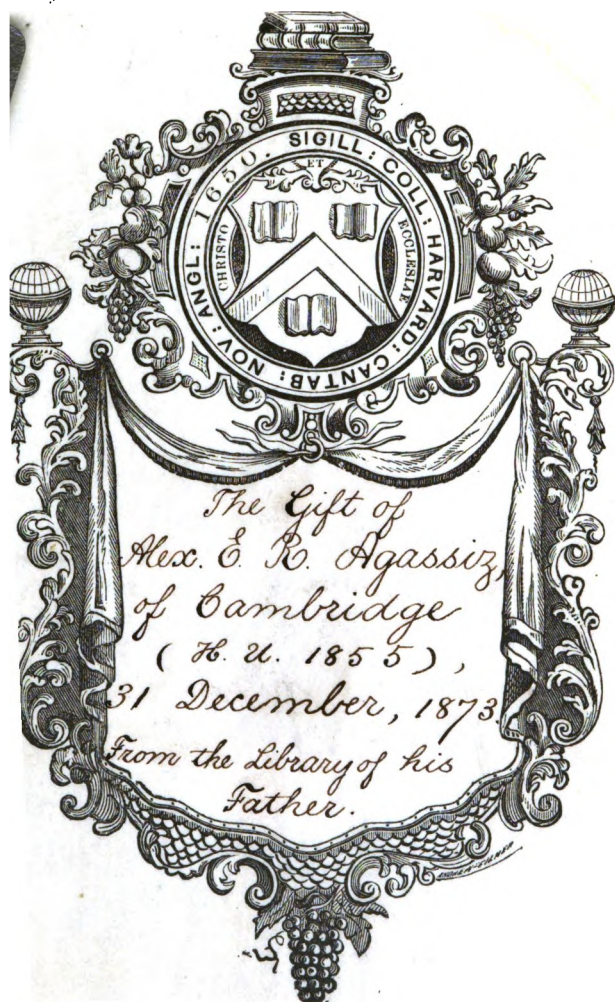 SIGILL: COLL: HARVARD: CANTAB: NOV: ANGL: 1650.
ET
CHRISTO
ECCLESIAE
The Gift of
Alex. E. R. Agassiz,
of Cambridge
(H. U. 1855),
31 December, 1873.
From the Library of his
Father.